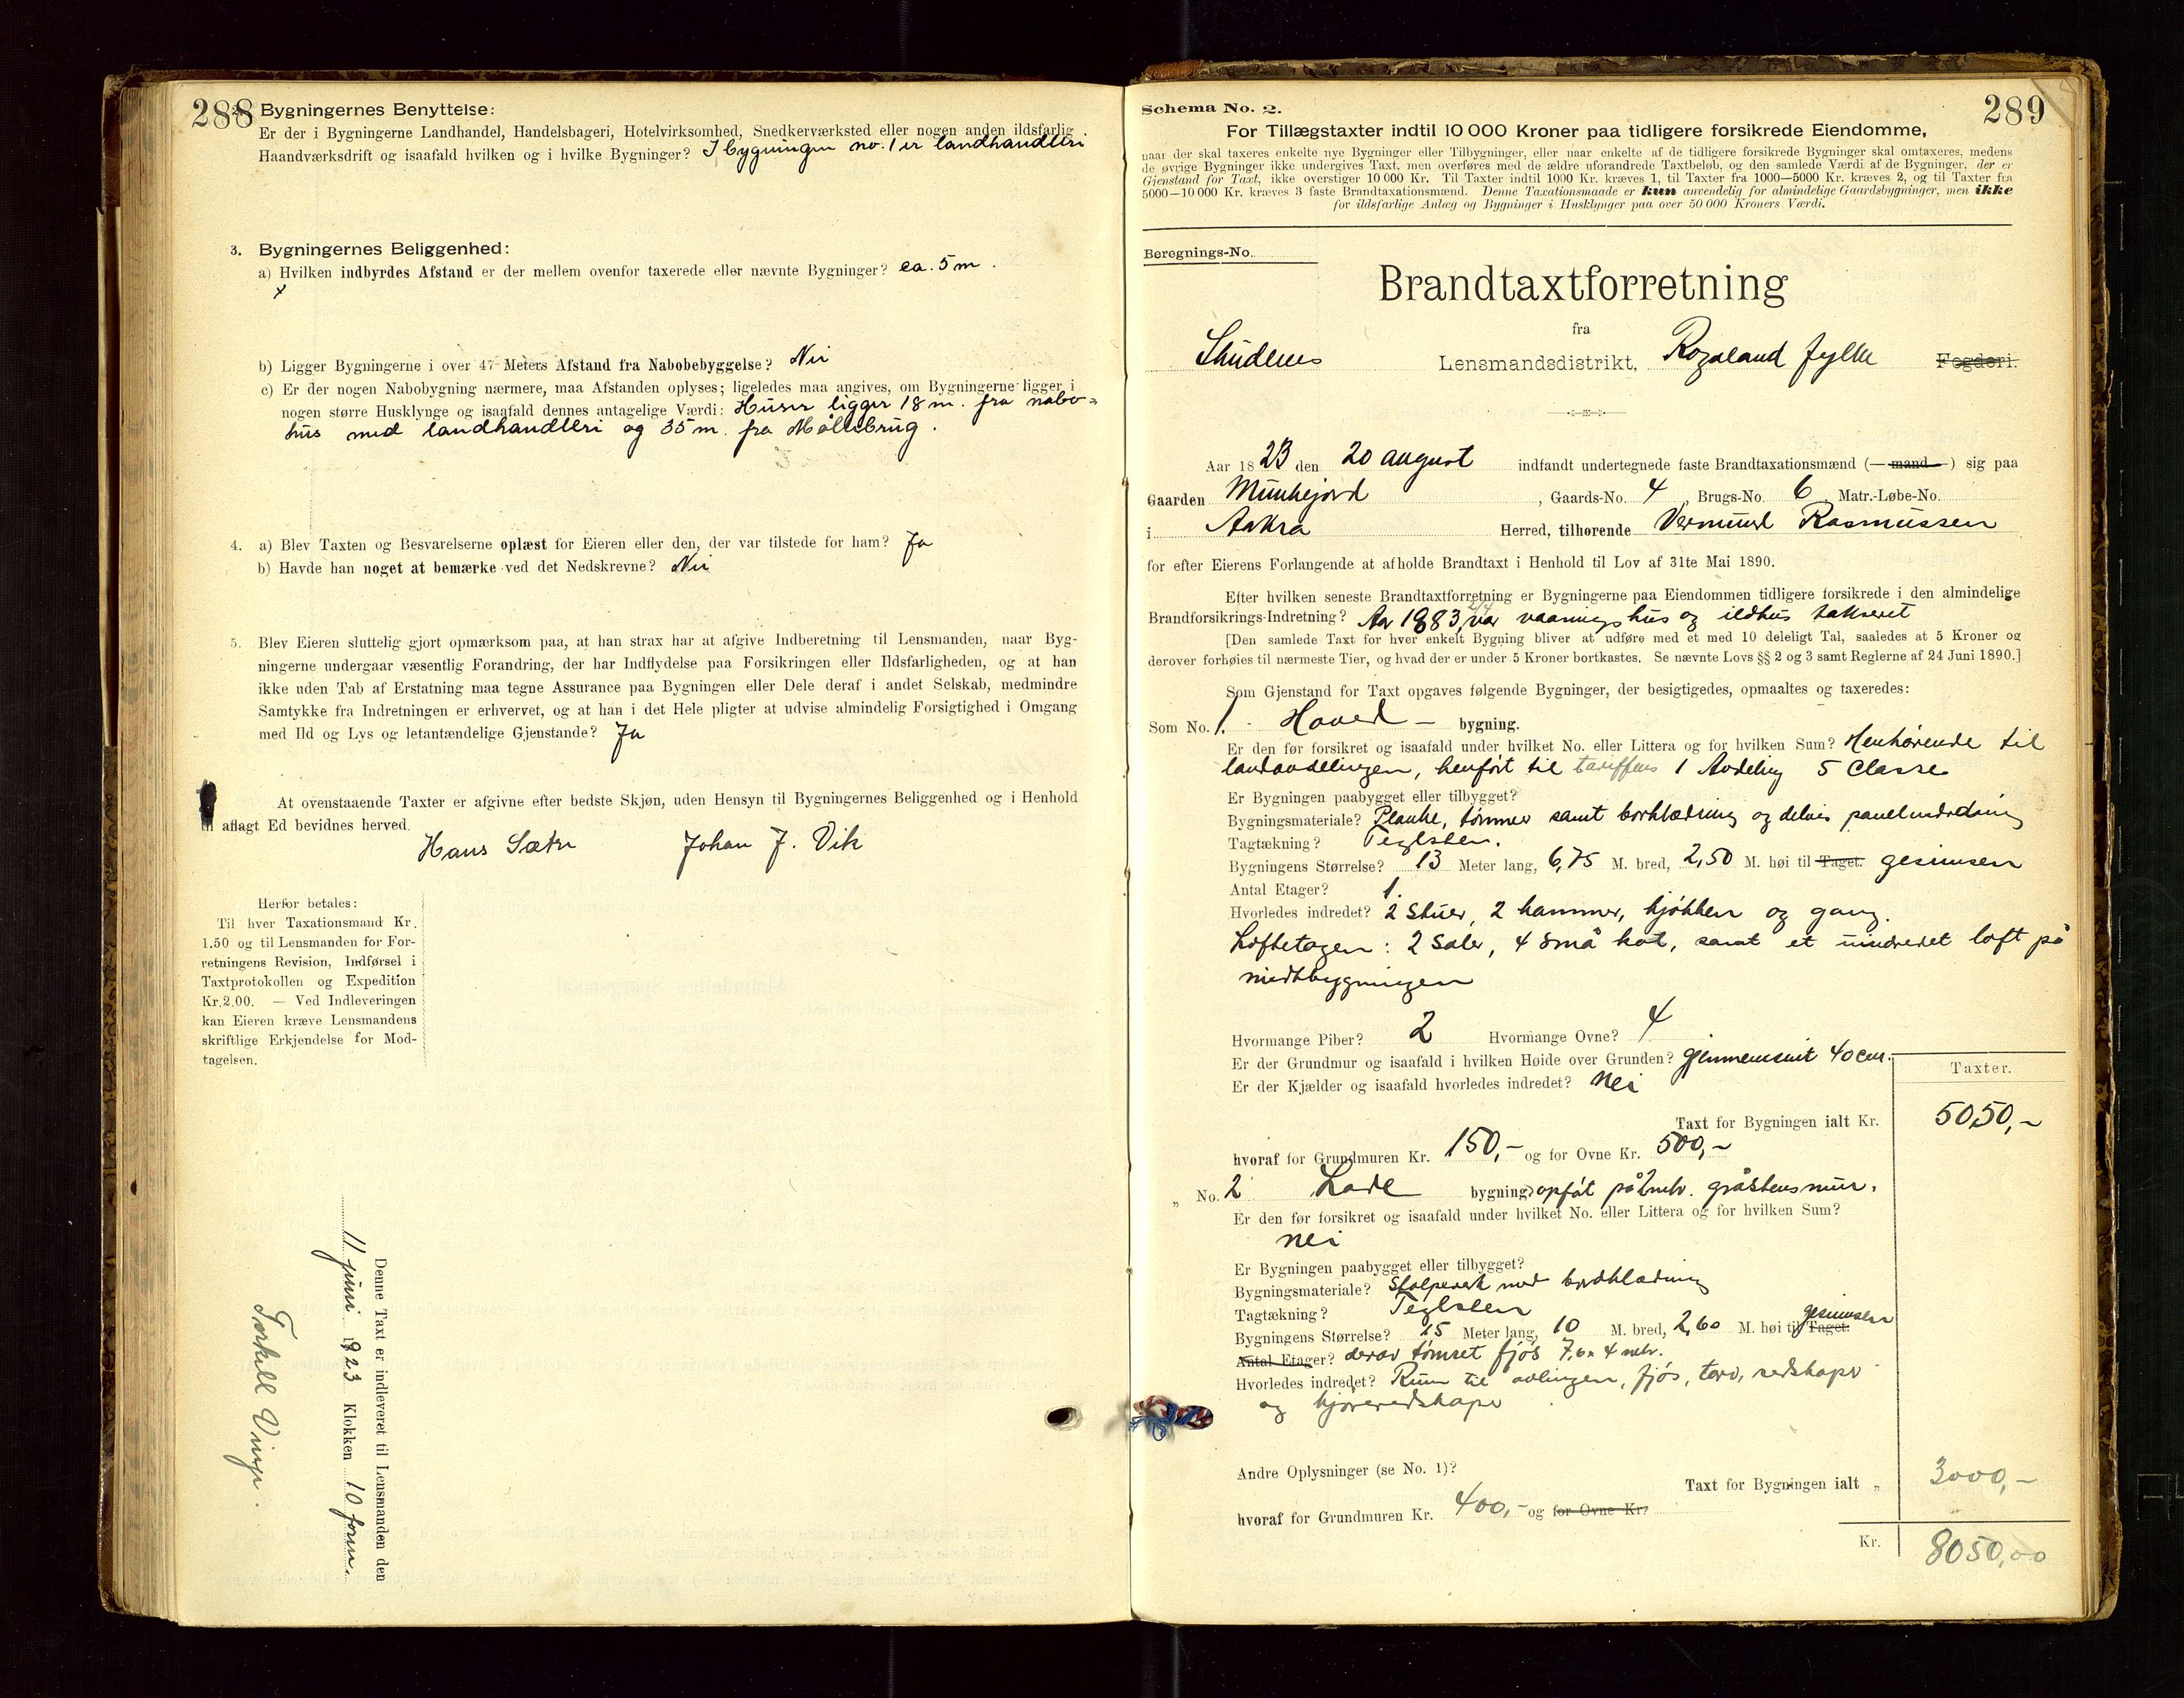 288 Bygningernes Benyttelse:
Er der i Bygningerne Landhandel, Handelsbageri, Hotelvirksomhed, Snedkerværksted eller nogen anden ildsfarlig
Haandværksdrift og isaafald hvilken og i hvilke Bygninger? I bygningen no. 1 er landhandleri
3. Bygningernes Beliggenhed:
a) Hvilken indbyrdes Afstand er der mellem ovenfor taxerede eller nævnte Bygninger? ca. 5 m.
x
b) Ligger Bygningerne i over 47 Meters Afstand fra Nabobebyggelse? Nei
c) Er der nogen Nabobygning nærmere, maa Afstanden oplyses; ligeledes maa angives, om Bygningerne ligger i
nogen større Husklynge og isaafald dennes antagelige Værdi: Huser ligger 18 m. fra nabo=
hus med landhandleri og 35 m. fra Møllebrug.
4. a) Blev Taxten og Besvarelserne oplæst for Eieren eller den, der var tilstede for ham? Ja
b) Havde han noget at bemærke ved det Nedskrevne? Nei
5. Blev Eieren sluttelig gjort opmærksom paa, at han strax har at afgive Indberetning til Lensmanden, naar Byg-
ningerne undergaar væsentlig Forandring, der har Indflydelse paa Forsikringen eller Ildsfarligheden, og at han
ikke uden Tab af Erstatning maa tegne Assurance paa Bygningen eller Dele deraf i andet Selskab, medmindre
Samtykke fra Indretningen er erhvervet, og at han i det Hele pligter at udvise almindelig Forsigtighed i Omgang
med Ild og Lys og letantændelige Gjenstande? Ja
At ovenstaaende Taxter er afgivne efter bedste Skjøn, uden Hensyn til Bygningernes Beliggenhed og i Henhold
til aflagt Ed bevidnes herved.
Hans Sætre Johan J. Vik
Herfor betales:
Til hver Taxationsmand Kr.
1.50 og til Lensmanden for For-
retningens Revision, Indførsel i
Taxtprotokollen og Expedition
Kr. 2.00. — Ved Indleveringen
kan Eieren kræve Lensmandens
skriftlige Erkjendelse for Mod-
tagelsen.
Denne Taxt er indleveret til Lensmanden den
11 juni 1923 Klokken 10 form.
Torkell Vinje.
289
Schema No. 2.
For Tillægstaxter indtil 10 000 Kroner paa tidligere forsikrede Eiendomme,
naar der skal taxeres enkelte nye Bygninger eller Tilbygninger, eller naar enkelte af de tidligere forsikrede Bygninger skal omtaxeres, medens
de øvrige Bygninger ikke undergives Taxt, men overføres med de ældre uforandrede Taxtbeløb, og den samlede Værdi af de Bygninger, der er
Gjenstand for Taxt, ikke overstiger 10 000 Kr. Til Taxter indtil 1000 Kr. kræves 1, til Taxter fra 1000—5000 Kr. kræves 2, og til Taxter fra
5000—10 000 Kr. kræves 3 faste Brandtaxationsmænd. Denne Taxationsmaade er kun anvendelig for almindelige Gaardsbygninger, men ikke
for ildsfarlige Anlæg og Bygninger i Husklynger paa over 50 000 Kroners Værdi.
Beregnings-No.
Brandtaxtforretning
fra
Skudenes Lensmandsdistrikt, Rogaland fylke Fogderi.
Aar 1823 den 20 august indfandt undertegnede faste Brandtaxationsmænd (—mand—) sig paa
Gaarden Munkejord, Gaards-No. 4, Brugs-No. 6, Matr.-Løbe-No.
i Aakra Herred, tilhørende Vermund Rasmussen
for efter Eierens Forlangende at afholde Brandtaxt i Henhold til Lov af 31te Mai 1890.
Efter hvilken seneste Brandtaxtforretning er Bygningerne paa Eiendommen tidligere forsikrede i den almindelige
Brandforsikrings-Indretning? Aar 1883, var vaaningshus og ildhus taksert
[Den samlede Taxt for hver enkelt Bygning bliver at udføre med et med 10 deleligt Tal, saaledes at 5 Kroner og
derover forhøies til nærmeste Tier, og hvad der er under 5 Kroner bortkastes. Se nævnte Lovs §§ 2 og 3 samt Reglerne af 24 Juni 1890.]
Som Gjenstand for Taxt opgaves følgende Bygninger, der besigtigedes, opmaaltes og taxeredes:
Som No. 1. Hoved- bygning.
Er den før forsikret og isaafald under hvilket No. eller Littera og for hvilken Sum? Henhørende til
landandelingen, henført til tariffens 1 Avdeling 5 Classe
Er Bygningen paabygget eller tilbygget?
Bygningsmateriale? Planke, tømmer samt bordklædning og delvis panelindredning
Tagtækning? Teglsten.
Bygningens Størrelse? 13 Meter lang, 6,75 M. bred, 2,50 M. høi til Taget. gesimsen
Antal Etager? 1.
Hvorledes indredet? 2 stuer, 2 kammer, kjøkken og gang.
Loftetagen: 2 saler, 4 små kot, samt et uindredet loft på
midtbygningen
Hvormange Piber? 2 Hvormange Ovne? 4
Er der Grundmur og isaafald i hvilken Høide over Grunden? gjennemsnit 40 cm.
Er der Kjælder og isaafald hvorledes indredet? Nei
Taxter.
Taxt for Bygningen ialt Kr. 5050,-
hvoraf for Grundmuren Kr. 150,- og for Ovne Kr. 500,-
„ No. 2 Lade bygning, opført på 2 mtr. gråstensmur.
Er den før forsikret og isaafald under hvilket No. eller Littera og for hvilken Sum?
Nei
Er Bygningen paabygget eller tilbygget?
Bygningsmateriale? Stolperek med bordklædning
Tagtækning? Teglsten
Bygningens Størrelse? 15 Meter lang, 10 M. bred, 2,60 M. høi til Taget. gesimsen
Antal Etager? derav tømret fjøs 7,6 x 4 mtr.
Hvorledes indredet? Rum til avlingen, fjøs, torv, redskaper
og kjøreredskaper
Andre Oplysninger (se No. 1)?
Taxt for Bygningen ialt „ 3000,-
hvoraf for Grundmuren Kr. 400,- og for Ovne Kr.
Kr. 8050,00